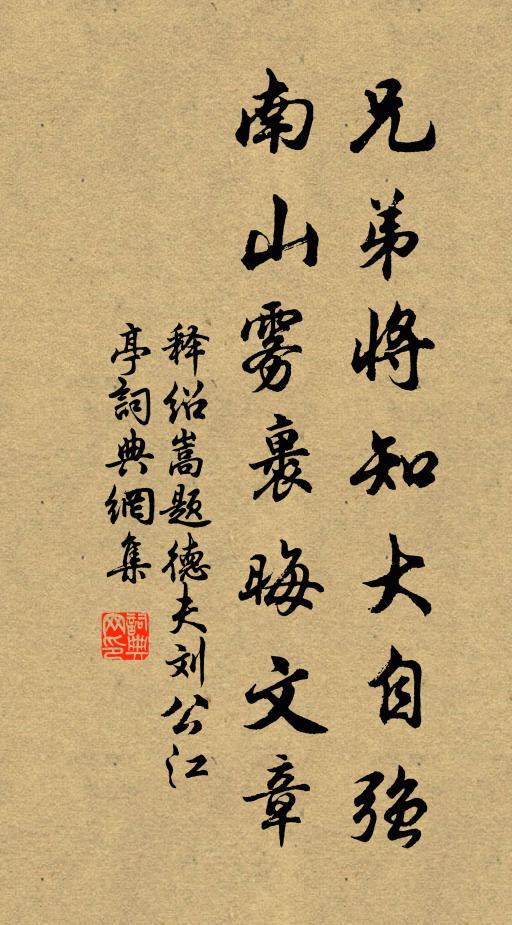 兄弟將知大自強
南山雾裏晦文章
释绍嵩题德夫刘公江
亭詞典網集
詞典網印